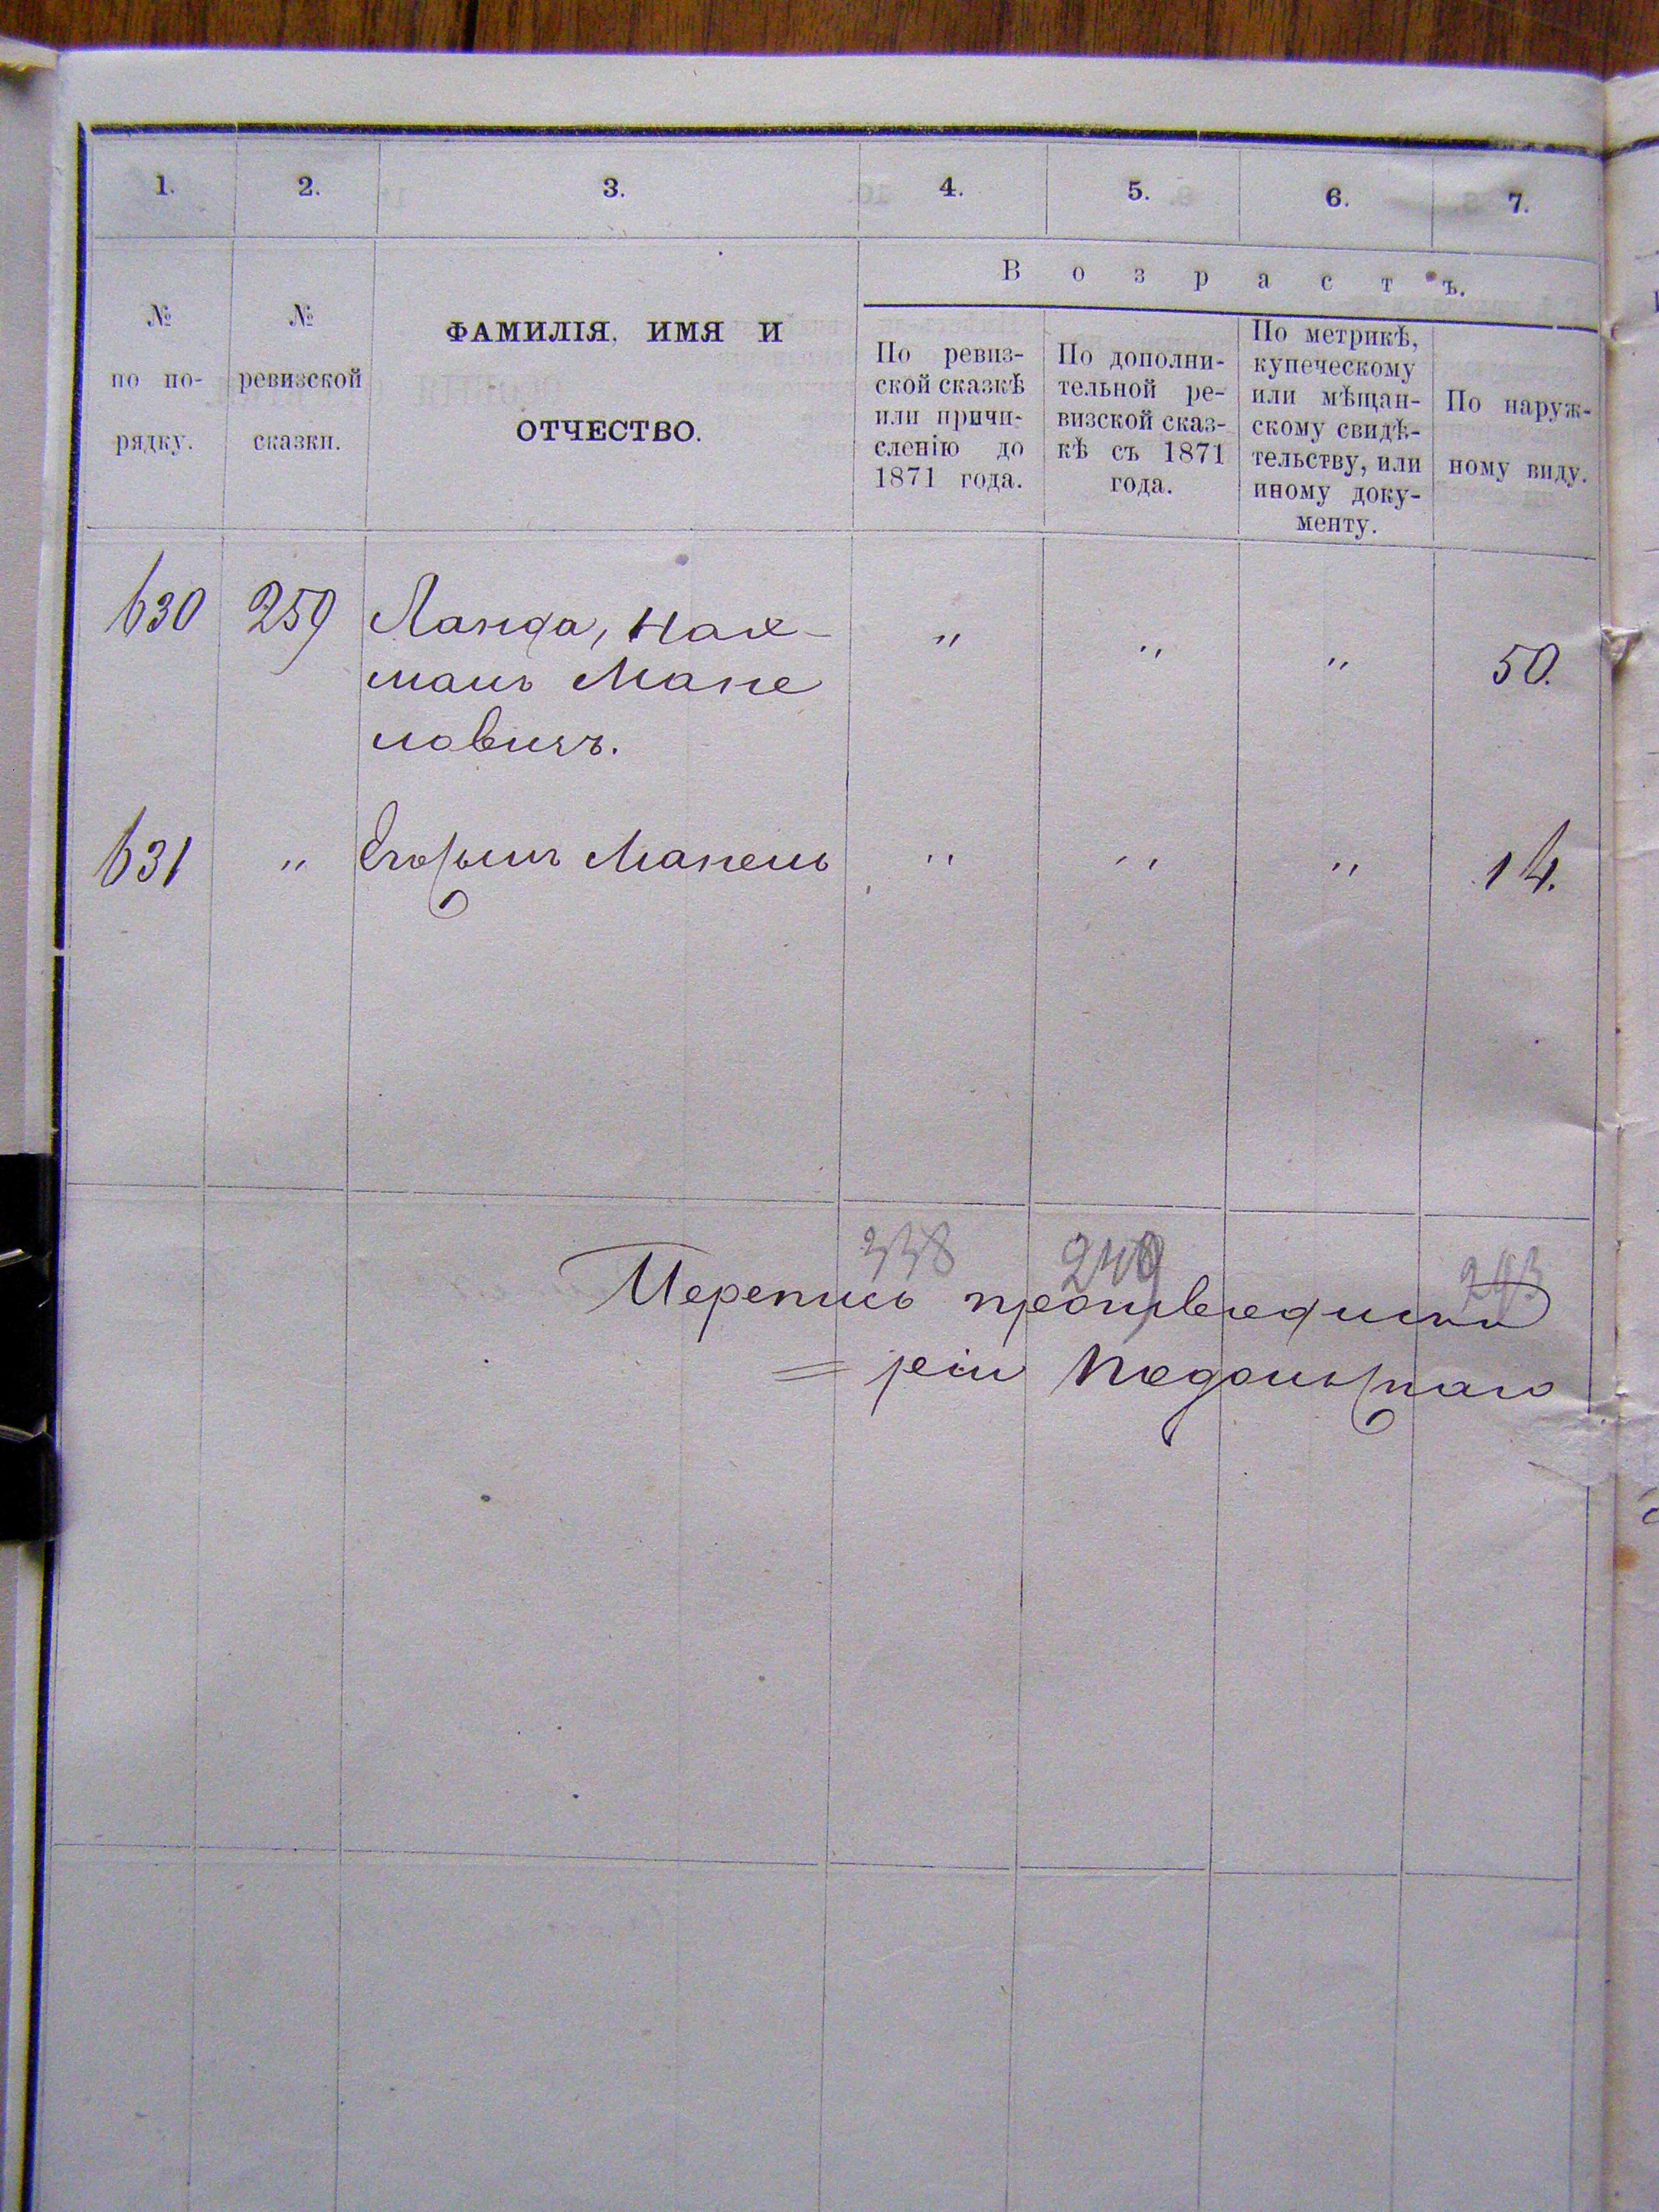 1. 2. 3. 4. 5. 6. 7.
№ по по-рядку.
№ ревизской сказки.
ФАМИЛІЯ, ИМЯ И
ОТЧЕСТВО.
Возрастъ.
По ревиз-
ской сказкѣ
или причи-
сленію до
1871 года.
По дополни-
тельной ре-
визской сказ-
кѣ съ 1871
года.
По метрикѣ,
купеческому
или мѣщан-
скому свидѣ-
тельству, или
иному доку-
менту.
По наруж-
ному виду.
630 259 Ланда, Нах- " " " 50.
манъ Мане
ловичъ.
631 " Его сынъ Манель " " " 14.
338 249 243
Перепись произведена
= рія Подольскаго